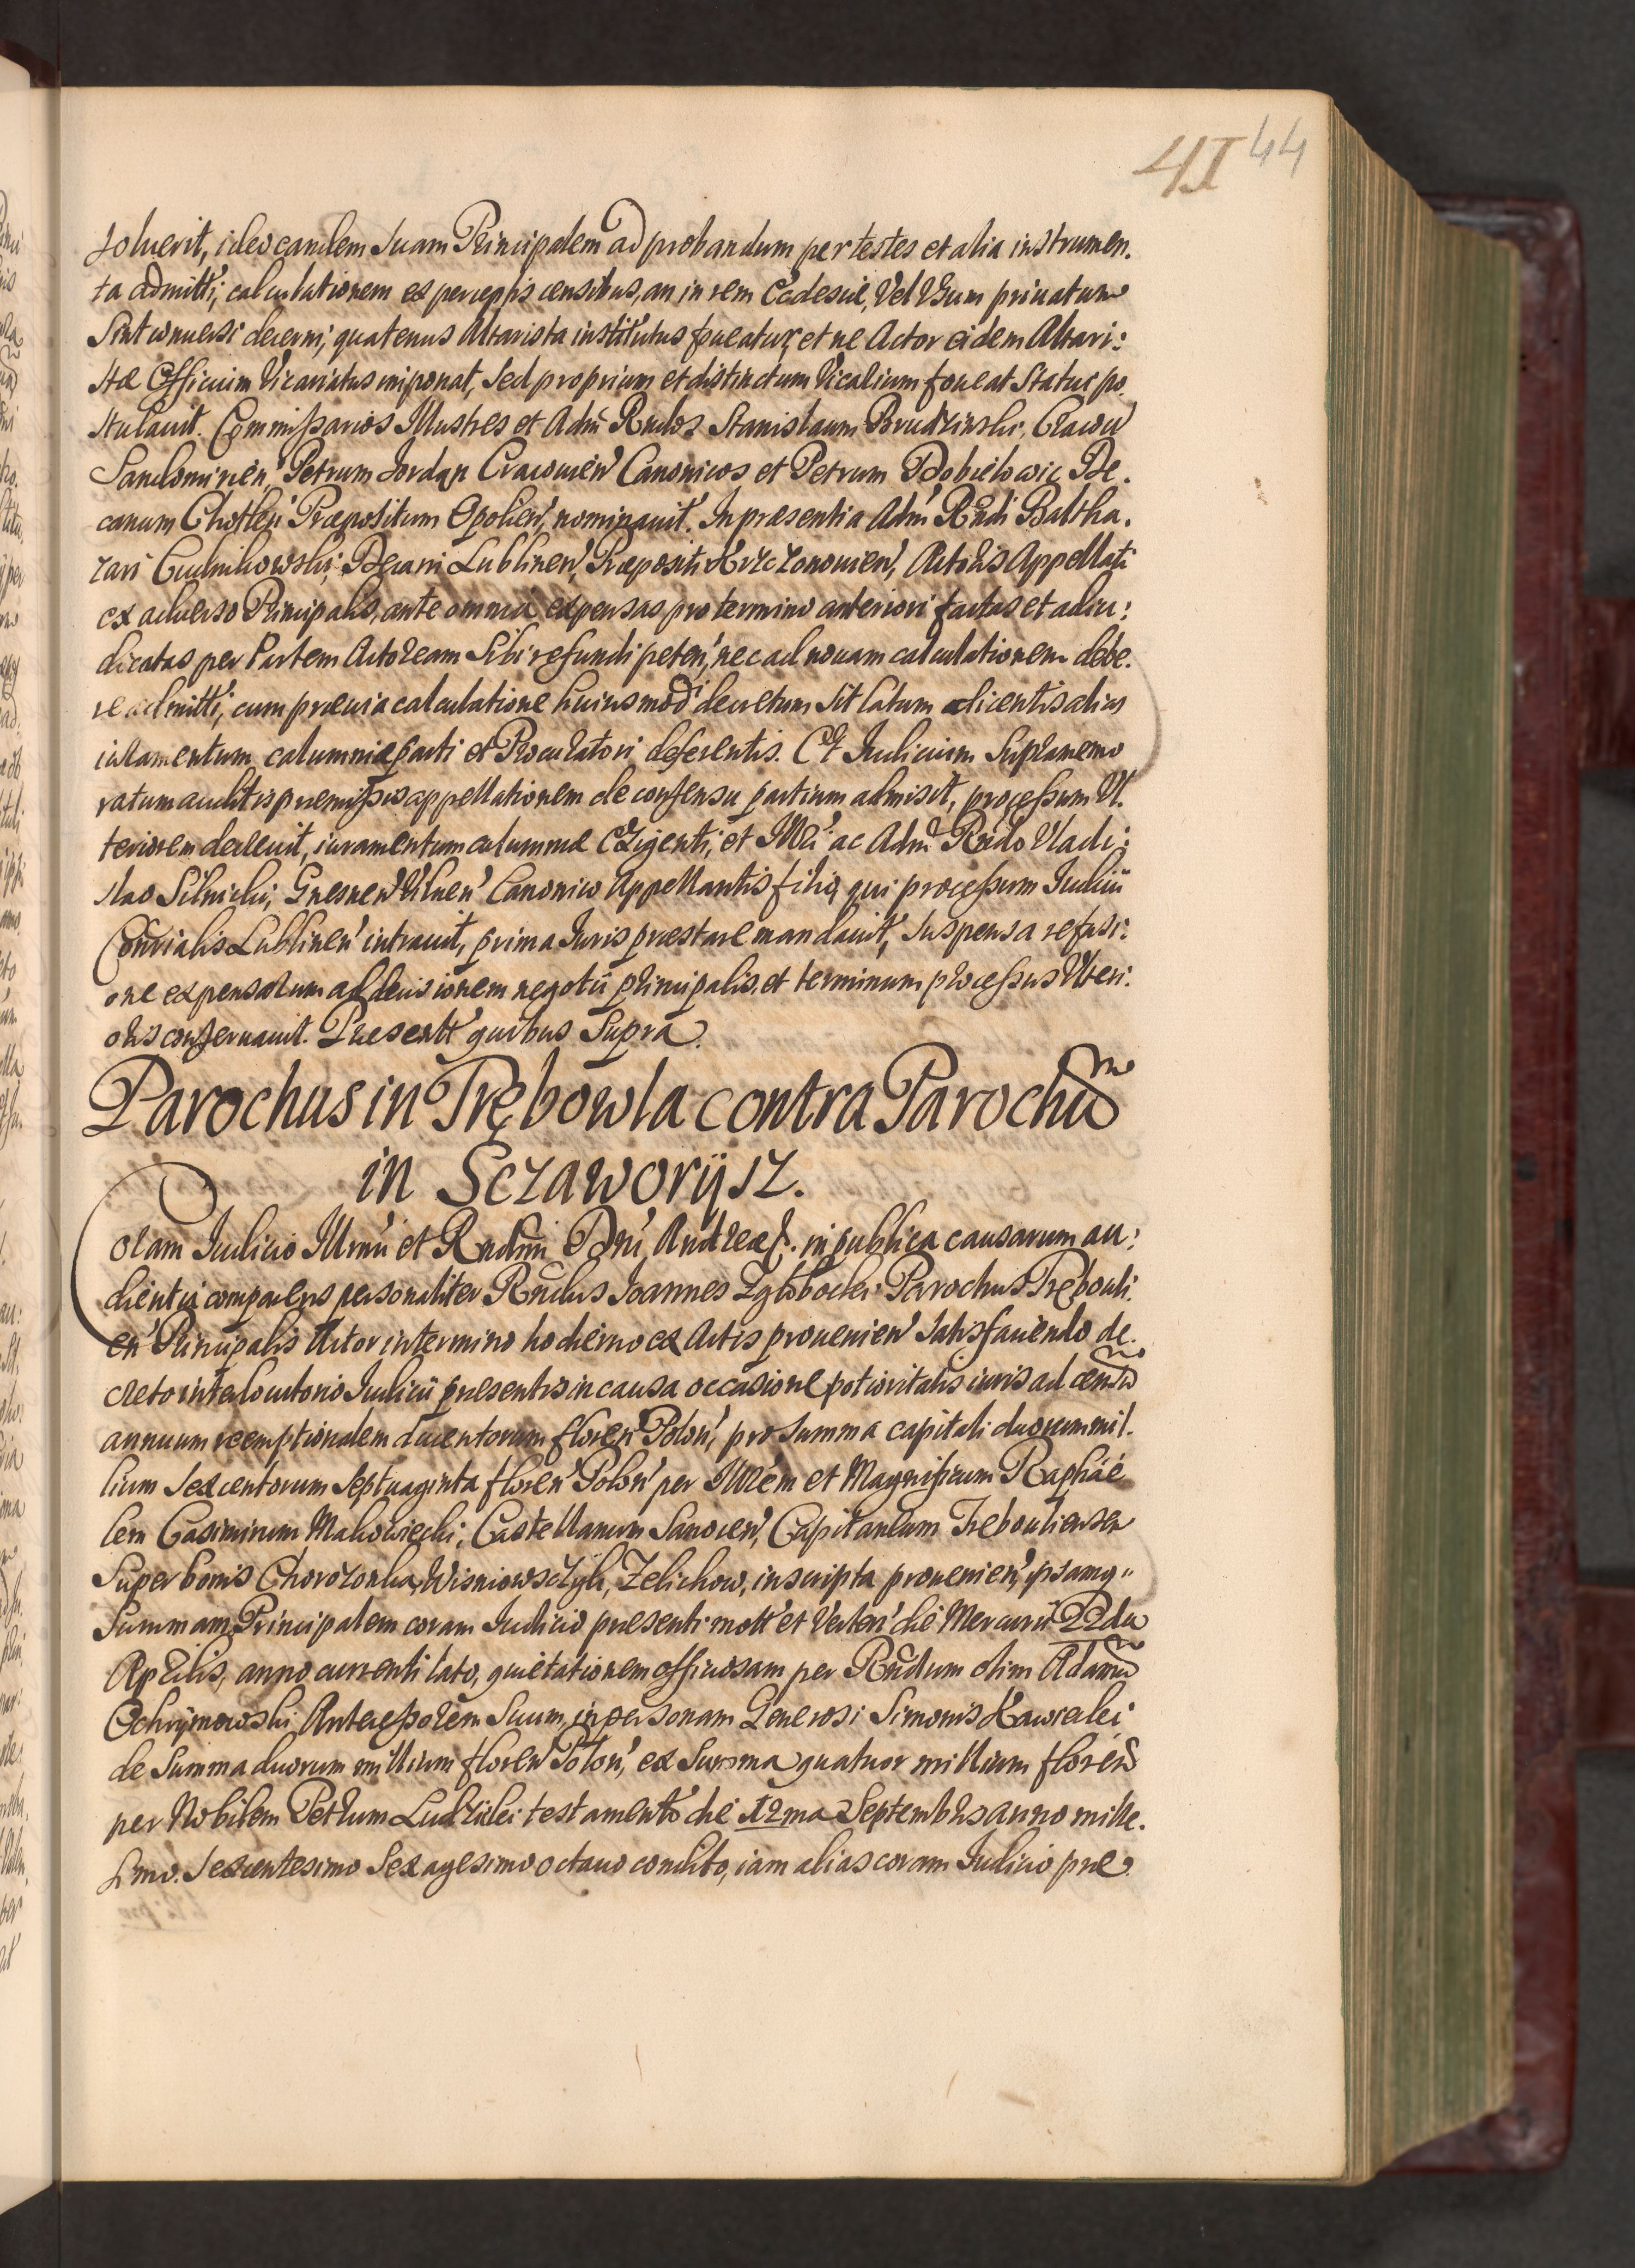 41 44
soluerit, ideo eandem Suam Principalem ad probandum per testes et alia instrumen.
ta admitti, calculationem ex perceptis censibus, an in rem Ecclesiæ, Vel Usum priuatum
Sint conuersi decerni, quatenus Altarista institutus foueatur, et ne Actor eidem Altari:
stæ Officium Vicariatus imponat, Sed proprium et distinctum Vicarium foueat Statui po.
stulauit. Commissarios Illustres et Adm̃ Rndos Stanislaum Brudzinski, Cracou
Sandomirien', Petrum Jordan Cracouien' Canonicos et Petrum Dobielowic De.
canum Chotlen' Præpositum Opolien', nominauit. In præsentia Adm̃ Rndi Baltha.
zari Decani Lublinen', Præpositi Krzczonouien', Actoris Appellati
ex aduerso Principalis, ante omnia expensas pro termino anteriori factas et adiu:
dicatas per Partem Actoream Sibi refundi peten', nec ad nouam calculationem debe.
re admitti, cum præuia calculatione huiusmodi decretum Sit latum dicentis alias
iuramentum calumniæ parti et Procuratori deferentis. Et Iudicium Supranomi
ratum auditis præmissis appellationem de consensu partium admisit, processum Ul.
teriorem decreuit, iuramentum calumniæ Exigenti, et Illri ac Adm̃ Rndo Vladi:
slao Silnicki, Gnesnen' Vilnen' Canonico Appellantis filio, qui processum Iudicii
Conrialis Lublinen' intrauit, prima Iuris præstare mandauit, Suspensa refusi:
one expensarum ad decisionem negotii principalis, et terminum processus Ulteri:
oris conseruauit. Presentt' quibus Supra.
Parochus in Trębowla contra Parochũm
in Sczaworÿsz.
Coram Iudicio Illrmi et Rndmi Dni' Andreæ p. in publica causarum au:
dientia comparens personaliter Rndus Joannes Zgłobocki Parochus Trębouli:
en' Principalis Actor in termino hodierno ex Actis prouenien' Satisfaciendo de.
creto interlocutorio Iudicii præsentis in causa occasione potioritatis iuris ad censũm
annuum reemptionalem ducentorum floren' Polon', pro Summa capitali duorum mil.
lium Sexcentorum Septuaginta floren' Polon' per Illrem et Magnificum Raphaë
lem Casimirum Makowiecki, Castellanum Canocen', Capitaneum Trebouliensem
Super bonis Chorozonka, Wisniowsczÿk, Zelichow, inscripta prouenien', ipsamq"
Summam Principalem coram Iudicio præsenti mott' et Verten' die Mercurii 22da
Aprilis, anno currenti lato, quietationem officiosam per Rndum olim Adamũm
Ochrÿmowski Antecessorem Suum in personam Generosi Simonis Kawecki
de Summa duorum millium floren' Polon', ex Summa quatuor millium floren
per Nobilem Petrum Ludzicki testamento die 12ma Septembris anno mille.
simo. Sexcentesimo Sexagesimo octauo condito, iam alias coram Iudicio præ